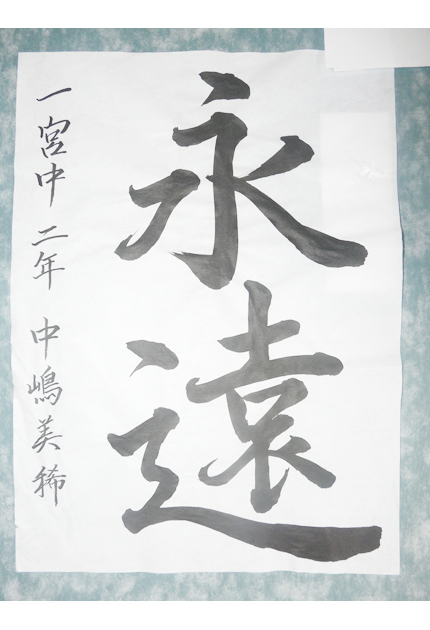 永遠
一宮中 二年 中嶋美稀